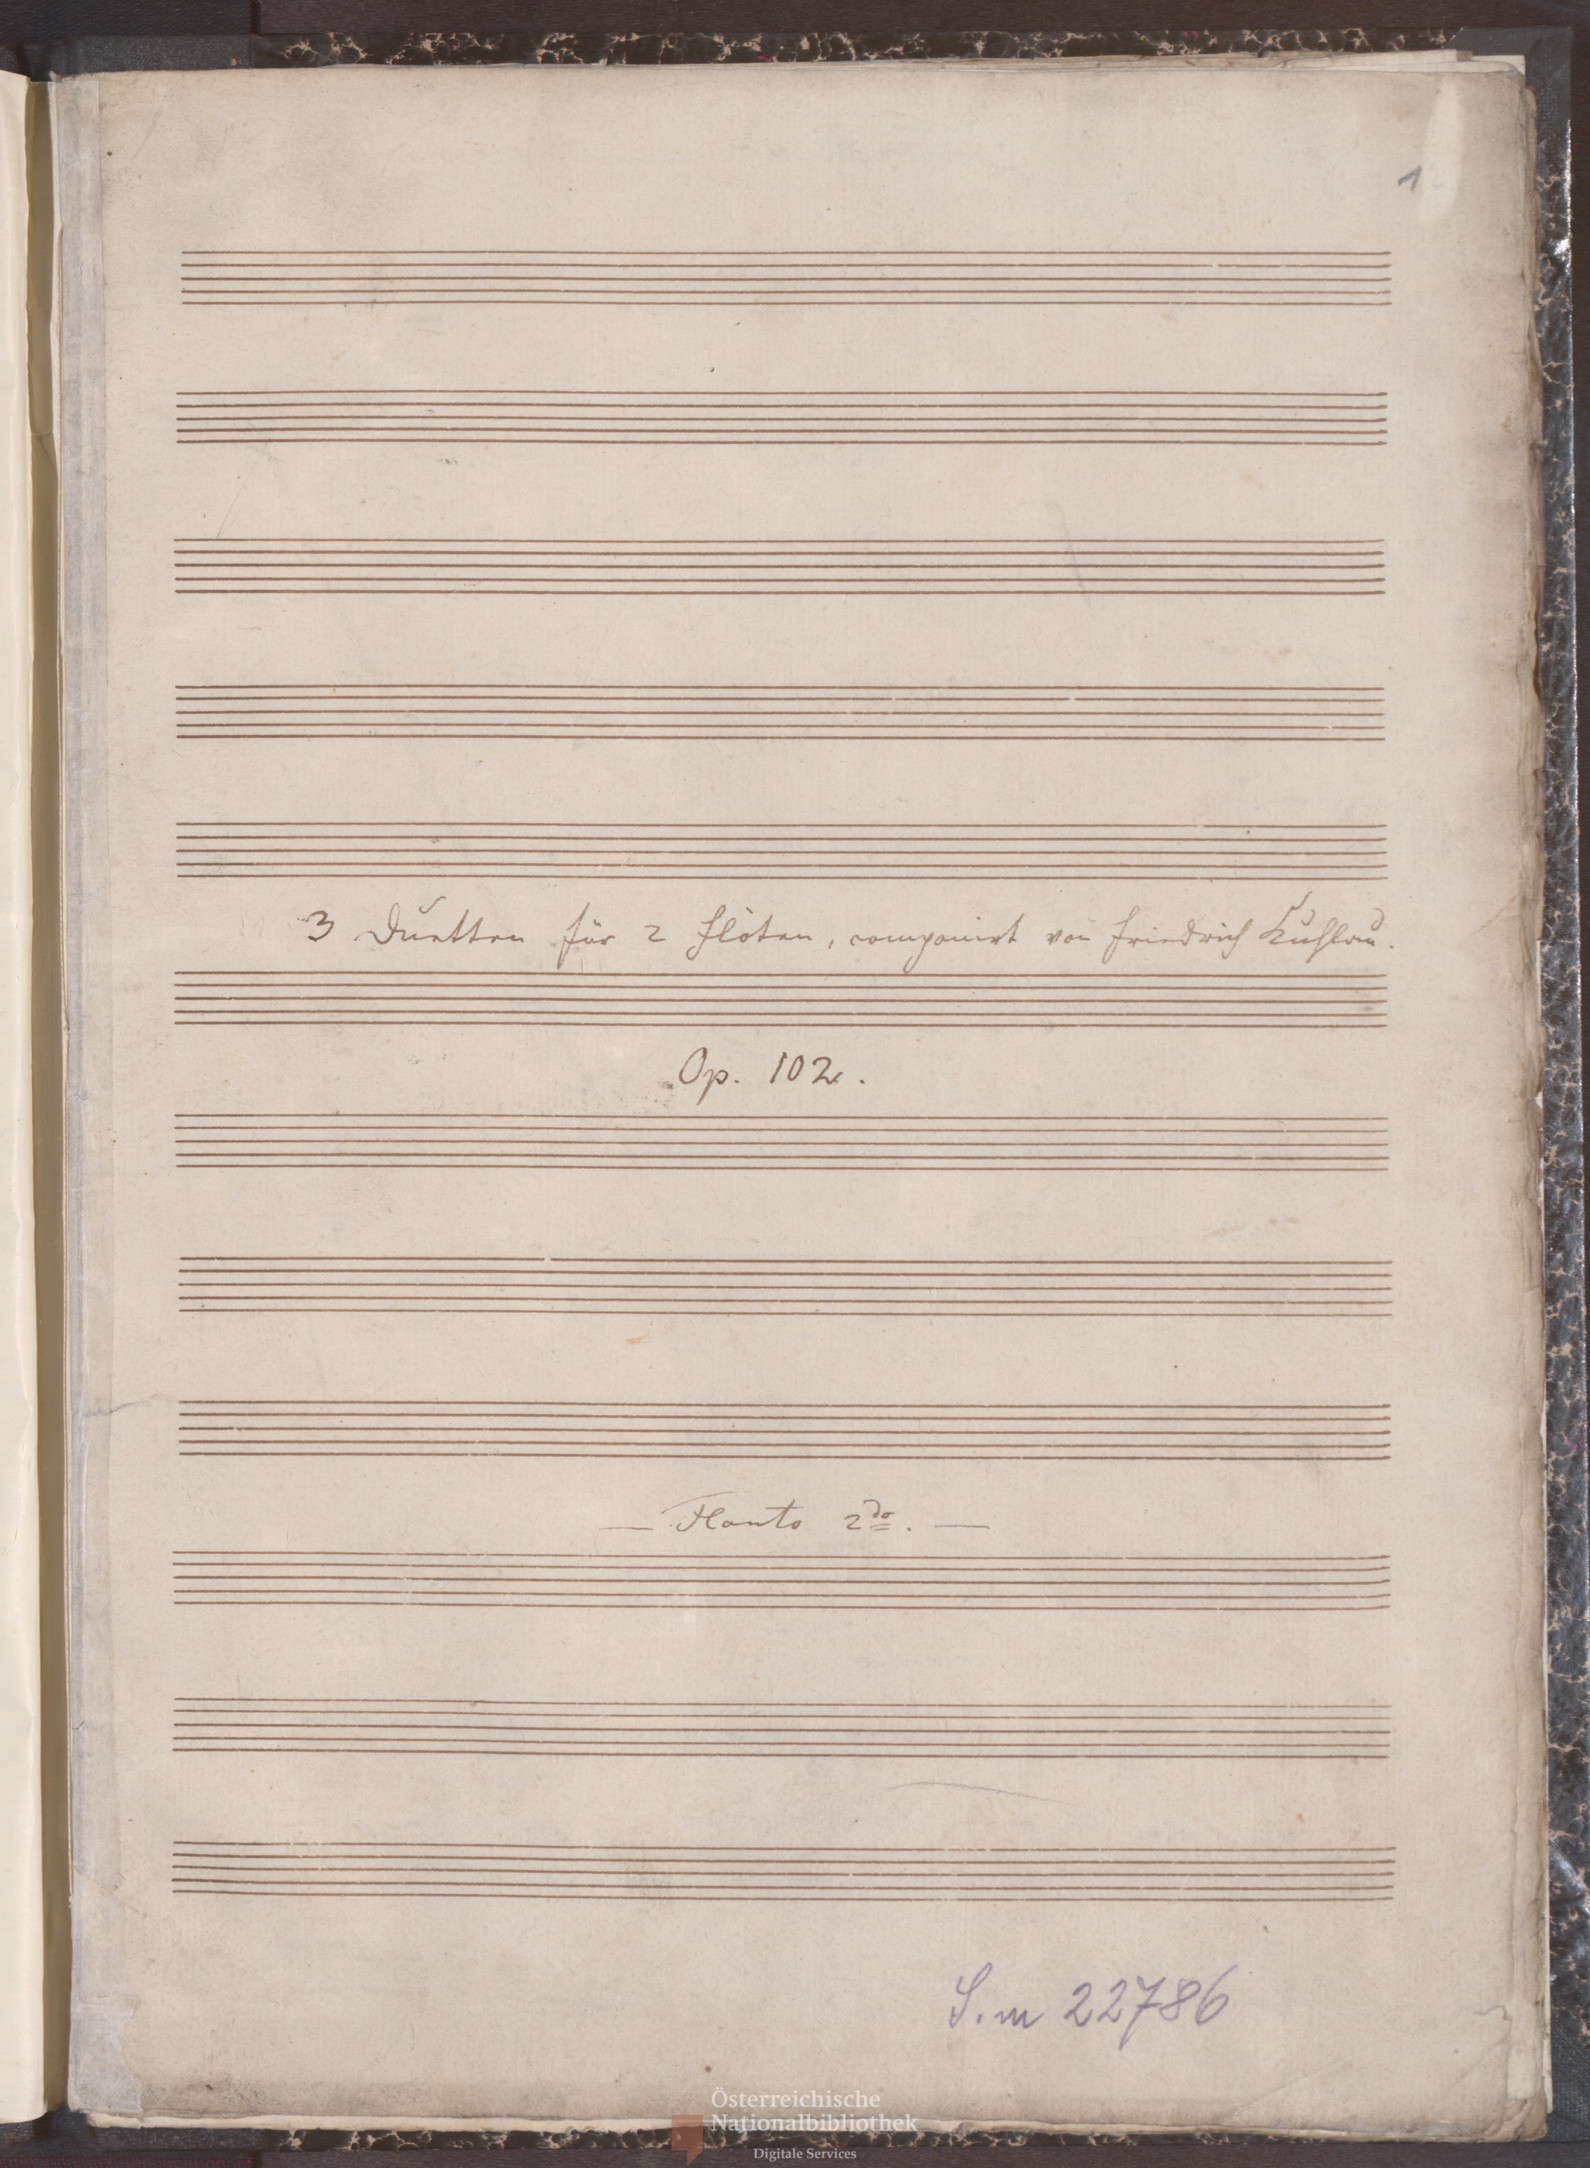 1
3 Duetten für 2 Flöten, componirt von Friedrich Kuhlau.
Op. 102.
— Flauto 2do. —
S.m 22786
Österreichische
Nationalbibliothek
Digitale Services